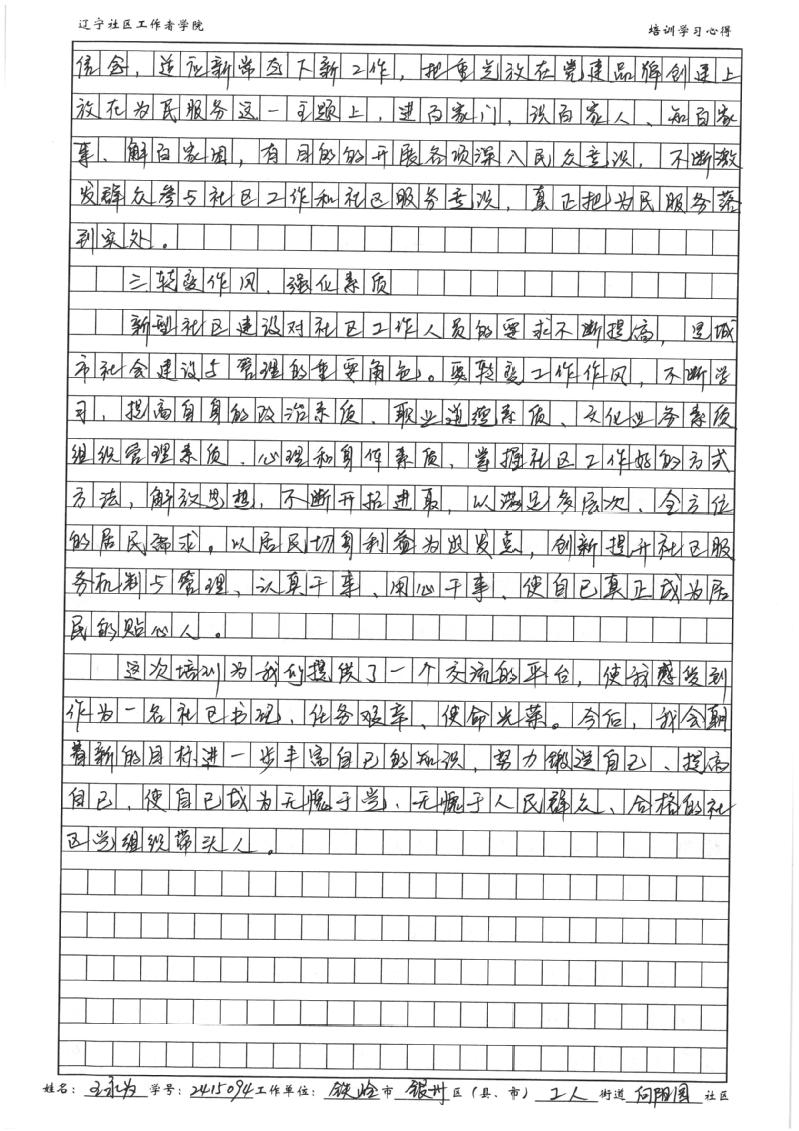 辽宁社区工作者学院
培训学习心得
信念，适应新常态下新工作，把重点放在党建品牌创建上
放在为民服务这一主题上，进百家门，识百家人、知百家
事、解百家困，有目的的开展各项深入民众意识，不断激
发群众参与社区工作和社区服务意识，真正把为民服务落
到实处。
三转变作风、强化素质
新型社区建设对社区工作人员的要求不断提高，是城
市社会建设与管理的重要角色。要转变工作作风，不断学
习，提高自身的政治素质、职业道德素质、文化业务素质
组织管理素质、心理和身体素质，掌握社区工作好的方式
方法，解放思想，不断开拓进取，以满足多层次、全方位
的居民需求。以居民切身利益为出发点，创新提升社区服
务机制与管理、认真干事、用心干事、使自己真正成为居
民的贴心人。
这次培训为我们提供了一个交流的平台，使我感受到
作为一名社区书记、任务艰辛、使命光荣。今后，我会朝
着新的目标进一步丰富自己的知识，努力锻造自己、提高
自己，使自己成为无愧于党、无愧于人民群众、合格的社
区党组织带头人。
姓名：王永 学号：2415094 工作单位：铁岭市 银州 区（县、市） 工人 街道 向阳园 社区